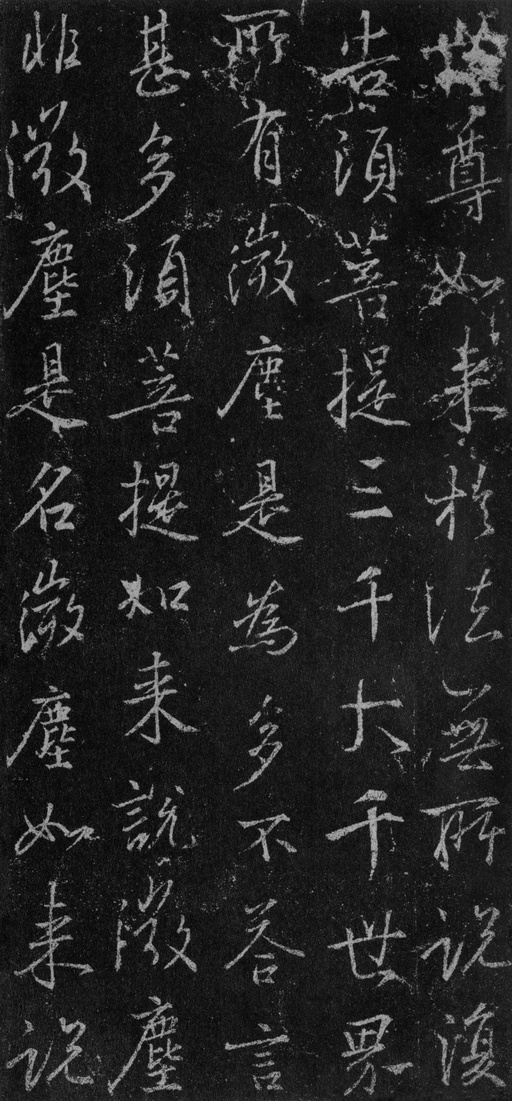 世尊如来於法無所説復
告須菩提三千大千世界
所有微塵是為多不答言
甚多須菩提如来説微塵
非微塵是名微塵如来説